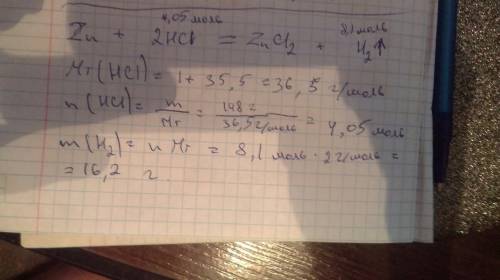 4,05 моль 8,1 моль
Zn + 2HCl = ZnCl₂ + H₂↑
Mr(HCl) = 1 + 35,5 = 36,5 г/моль
n(HCl) = m/Mr = 148 г/36,5 г/моль = 4,05 моль
m(H₂) = n Mr = 8,1 моль · 2 г/моль =
= 16,2 г